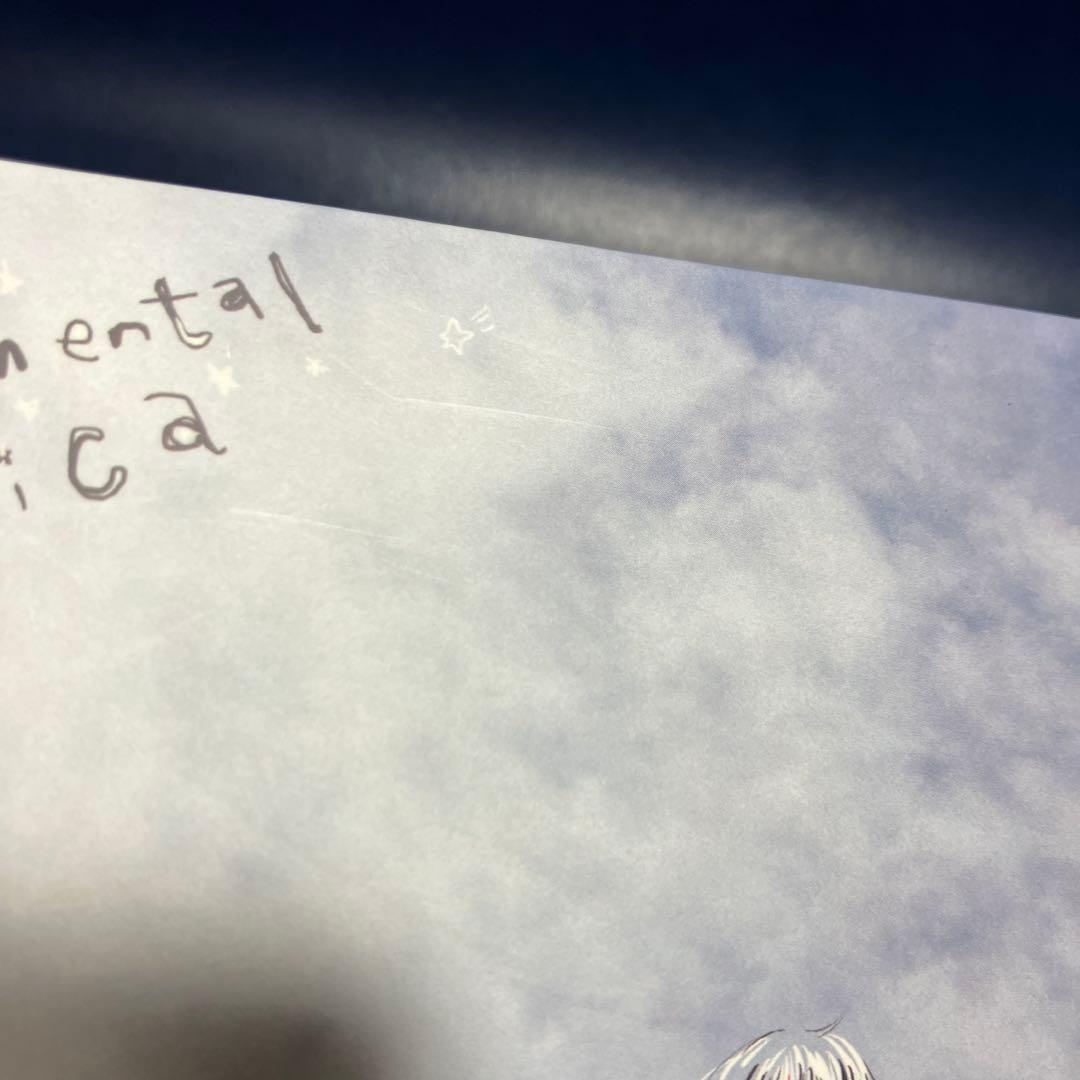 mental
ica